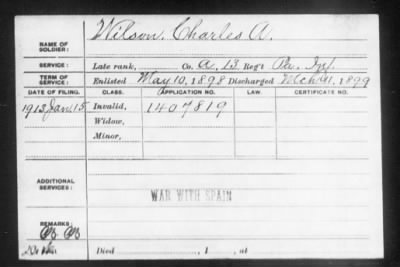 Wilson, Charles A.
NAME OF SOLDIER:
SERVICE: Late rank, Co. A, 13 Reg't Pa. Inf.
TERM OF SERVICE: Enlisted May 10, 1898 Discharged Mch 11, 1899
DATE OF FILING. CLASS. APPLICATION NO. LAW. CERTIFICATE NO.
1913 Jan 15 Invalid, 1407819
Widow,
Minor,
ADDITIONAL SERVICES:
WAR WITH SPAIN
REMARKS:
Died , 1 , at